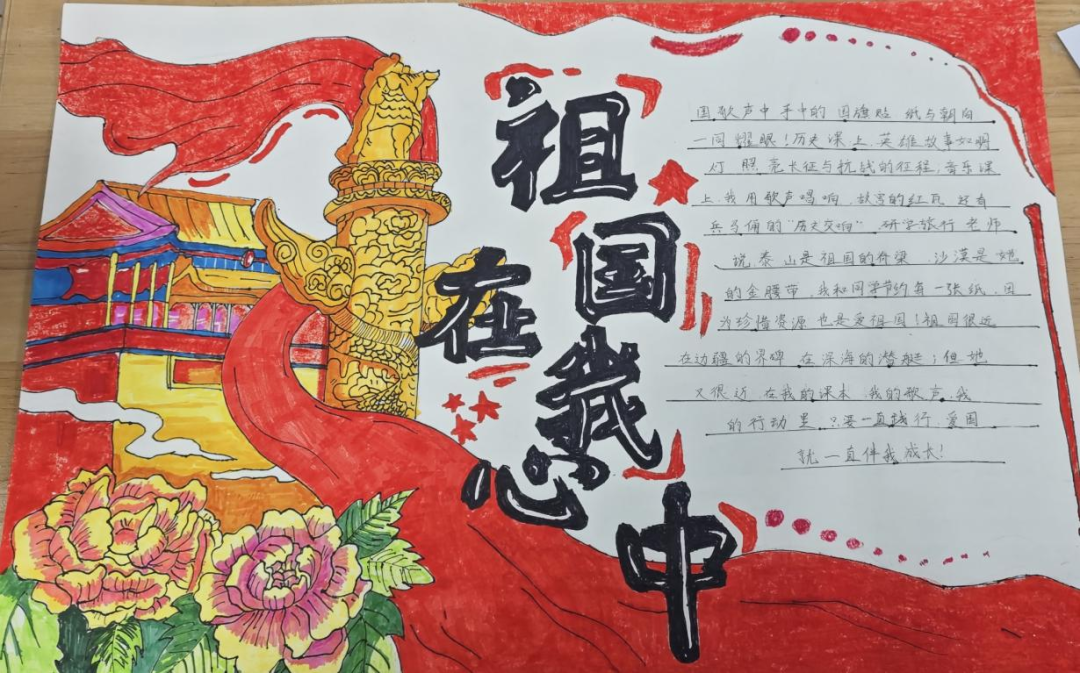 祖国在我心中
国歌声中手中的国旗贴纸与朝阳
一同耀眼!历史课上,英雄故事如明
灯照亮长征与抗战的征程,音乐课
上,我用歌声唱响,故宫的红瓦还有
兵马俑的“历史交响”,研学旅行老师
说泰山是祖国的脊梁,沙漠是她
的金腰带,我和同学节约每一张纸,因
为珍惜资源也是爱祖国!祖国很远
在边疆的界碑,在深海的潜艇;但她
又很近,在我的课本,我的歌声,我
的行动里?要一直践行,爱国
就一直伴我成长!